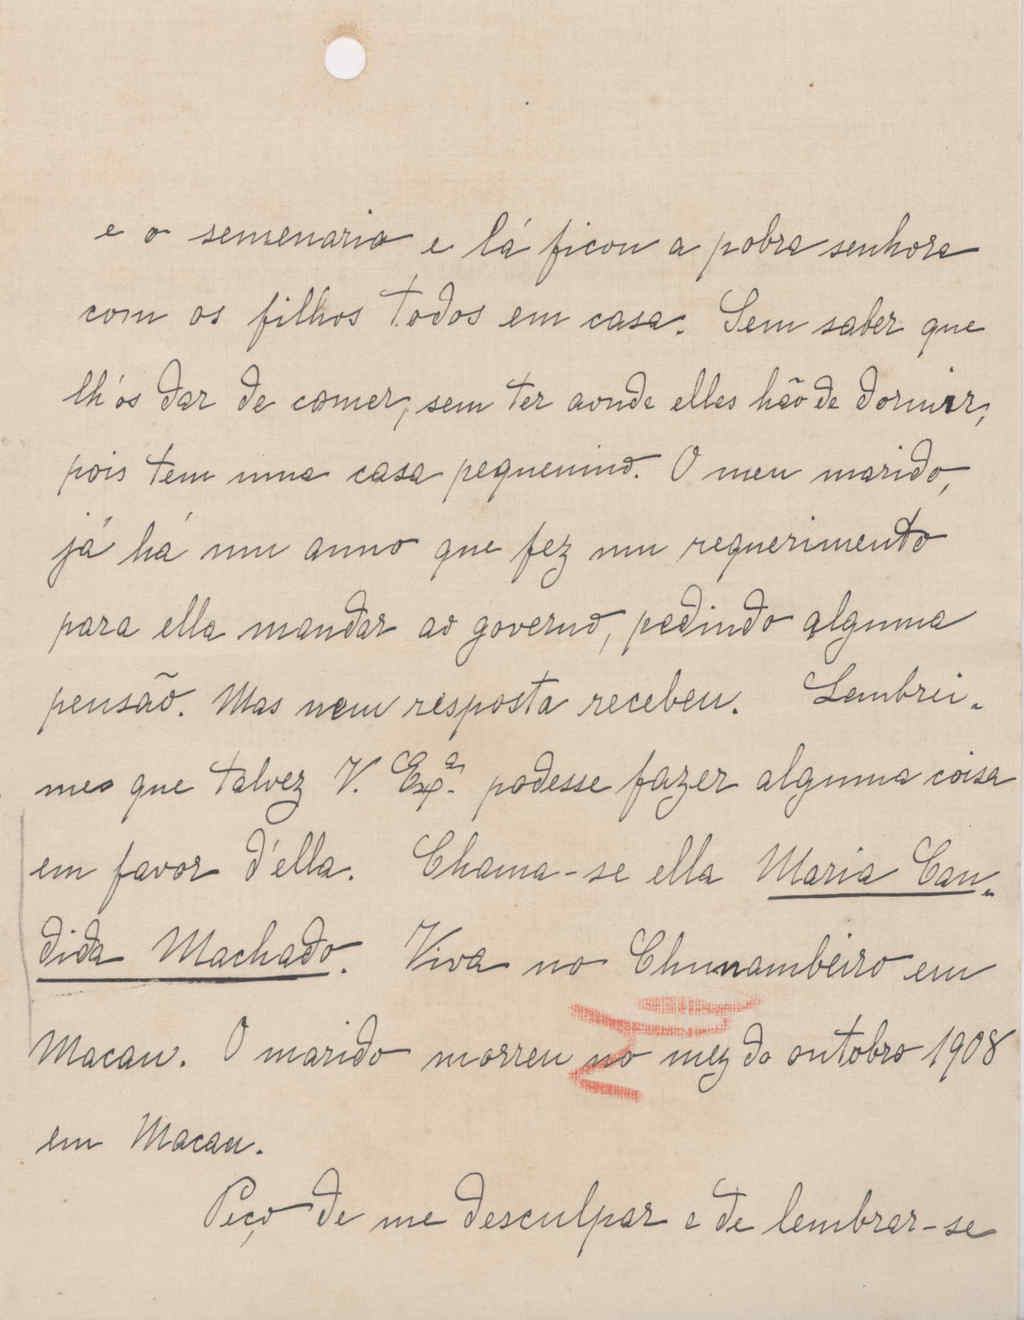 e o semenario e lá ficou a pobra senhora
com os filhos todos em casa. Sem saber que
lh'os dar de comer, sem ter aonde elles hão de dormir,
pois tem uma casa pequenina. O meu marido,
já há um anno que fez um requerimento
para ella mandar ao governo, pedindo alguma
pensão. Mas nem resposta recebeu. Lembrei-
me que talvez V. Exª. podesse fazer alguma coisa
em favor d'ella. Chama-se ella Maria Can-
dida Machado. Viva no Chunambeiro em
Macau. O marido morreu no mez do outobro 1908
em Macau.
Peço de me desculpar e de lembrar-se